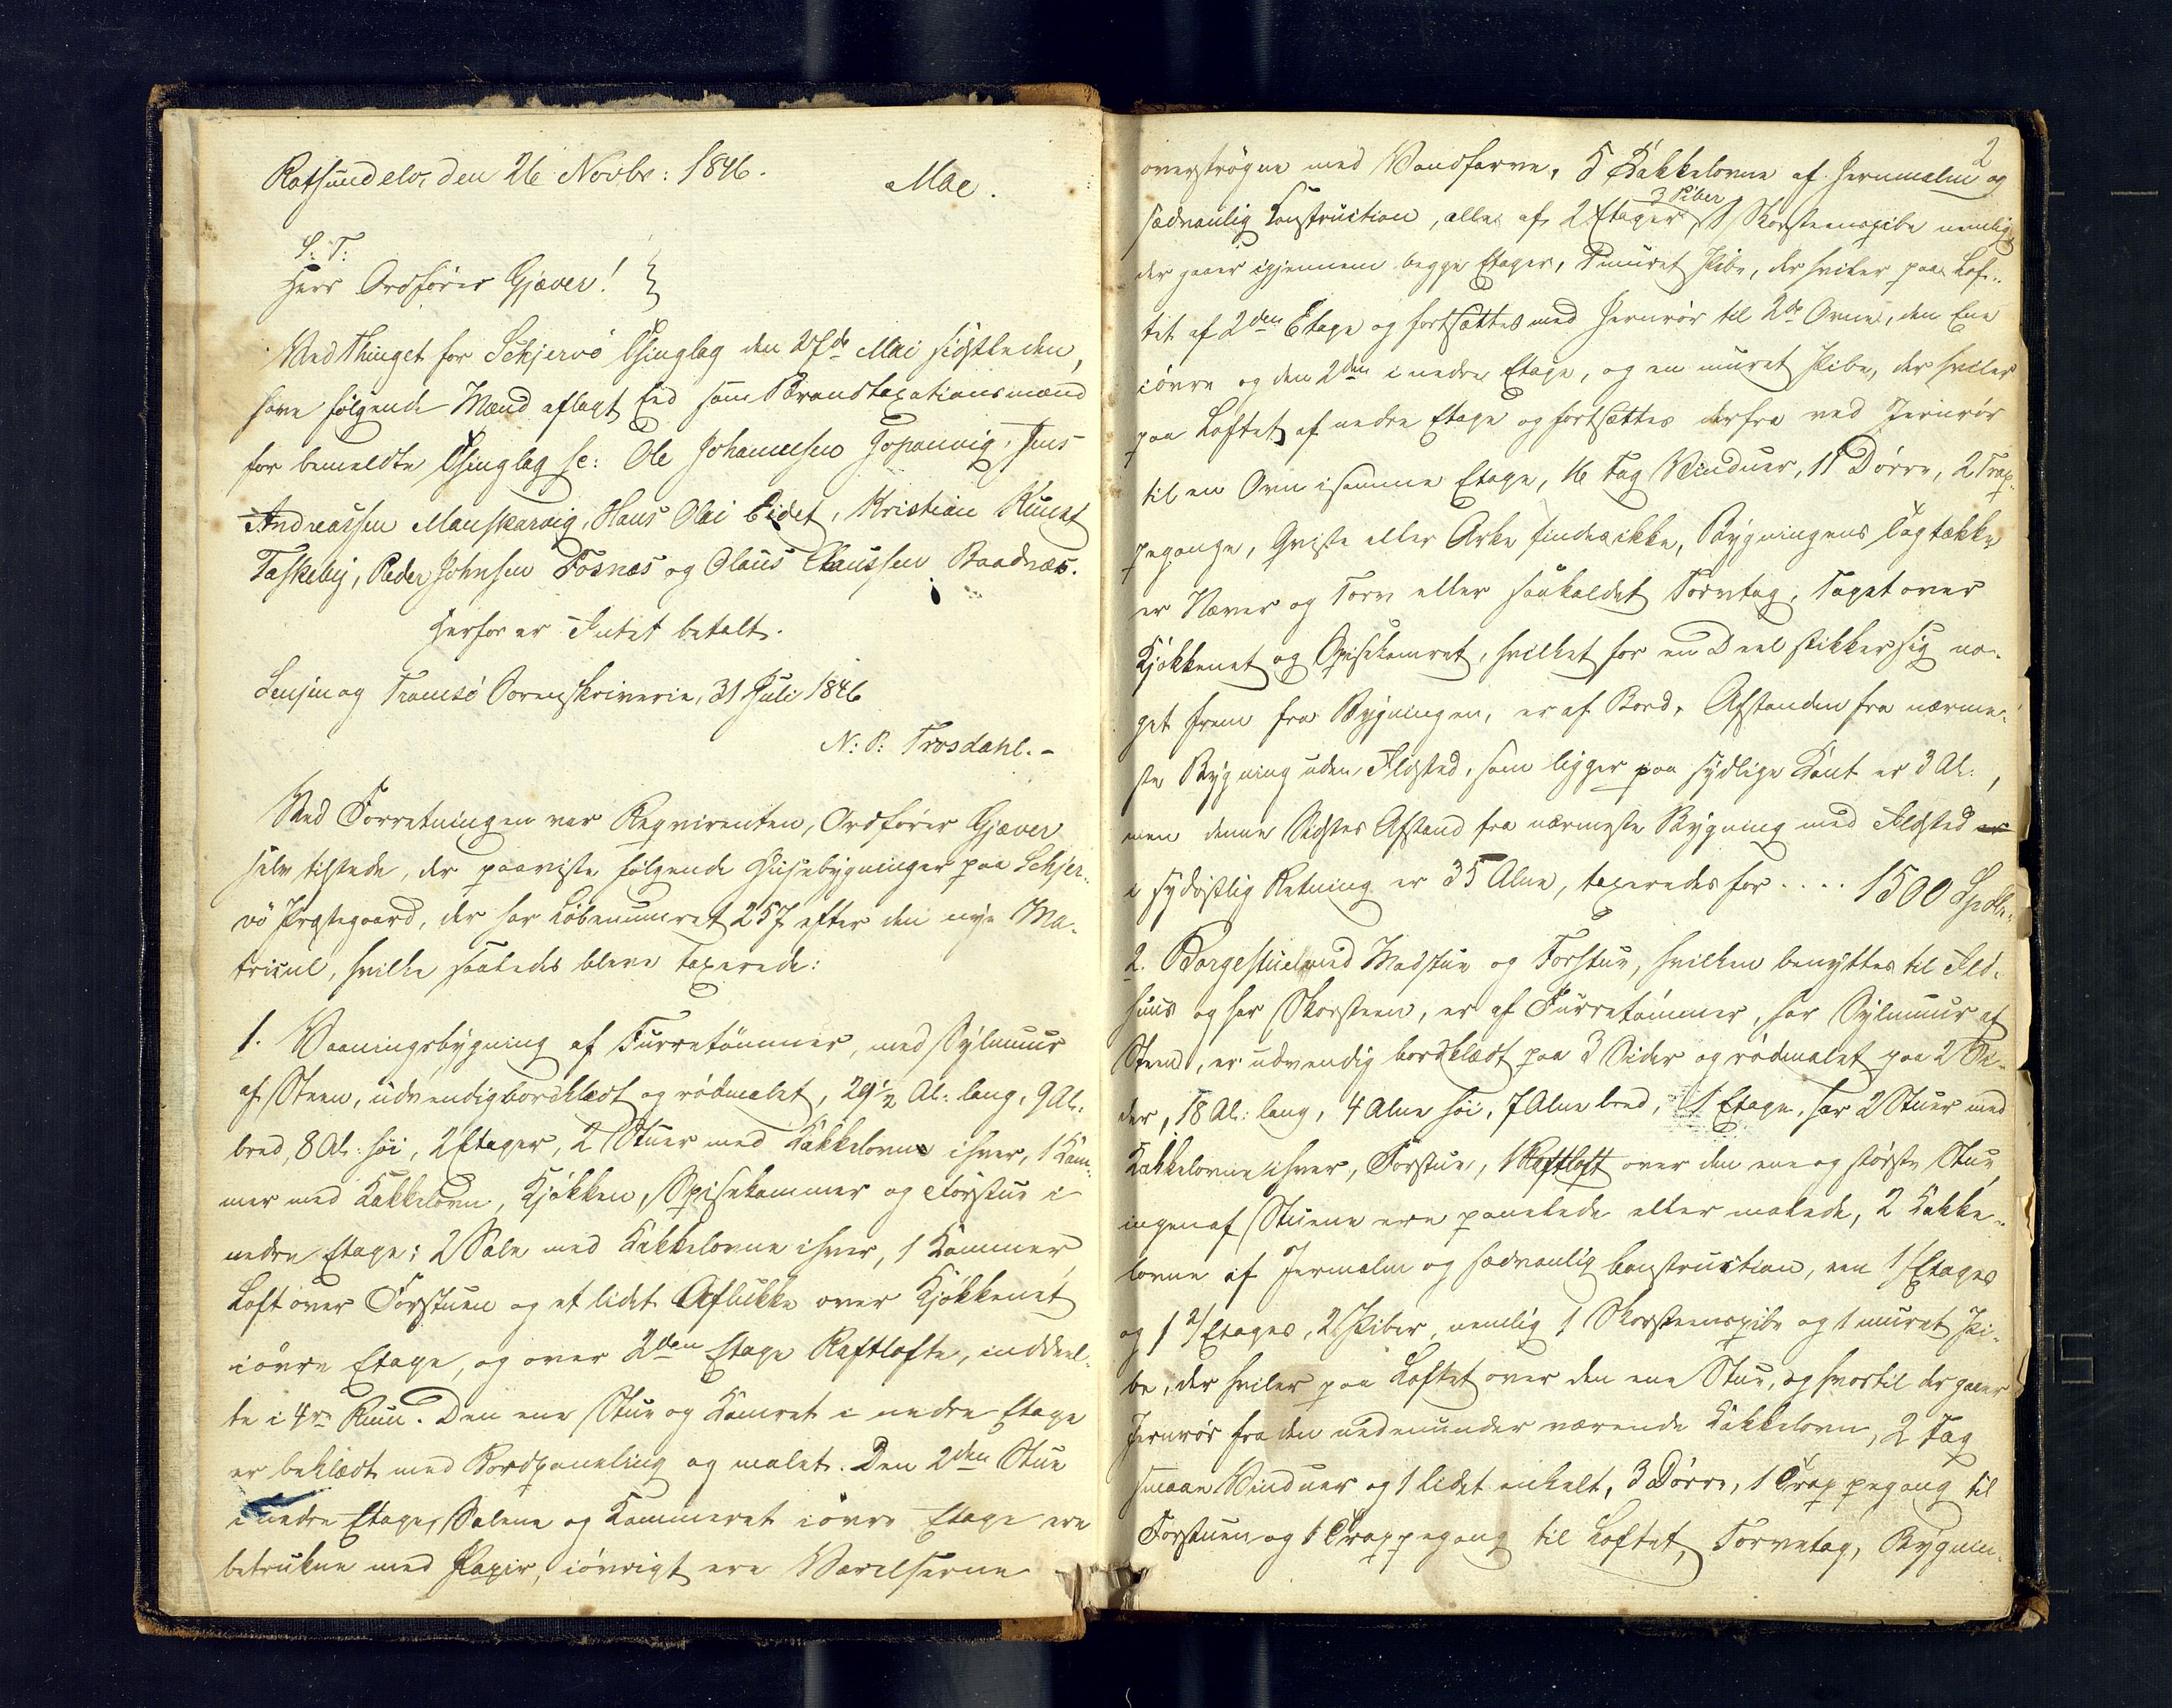 Rotsundelv, den 26 Novbr: 1846.
Mae.
S: T:
Herr Ordfører Gjæver!
Ved Thinget for Schjervø Thinglag den 27de Mai sidstleden,
have følgende Mænd aflagt Eed som Brandtaxationsmænd
for bemeldte Thinglag sc: Ole Johannesen Hopanvig, Jens
Andreassen Manskarvig, Hans Olai Eidet, Kristian Kunst
Taskeby, Peder Johnsen Fosnæs og Olaus Claussen Baadnæs.
Herfor er Intet betalt.
Senjen og Tromsø Sorenskriverie, 31 Juli 1846
N: P: Trosdahl.-
Ved Forretningen var Reqvirenten, Ordfører Gjæver
selv tilstede, der paaviste følgende Huusebygninger paa Schjer-
vø Præstegaard, der har Løbenumeret 257 efter den nye Ma-
tricul, hvilke saaledes bleve taxerede:
1. Vaaningsbygning af Furretømmer, med Sylmuur
af Steen, udvendig bordklædt og rødmalet, 29½ Al: lang, 9 Al:
bred, 8 Al: høi, 2 Etager, 2 Stuer med Kakkelovne i hver, 1 Kam-
mer med Kakkelovn, Kjøkken, Spisekammer og Forstue i
nedre Etage; 2 Sale med Kakkelovne i hver, 1 Kammer,
Loft over Forstuen og et lidet Aflukke over Kjøkkenet
i øvre Etage, og over 2den Etage Raftlofte, inddeel-
te i 4re Rum. Den ene Stue og Kamret i nedre Etage
er beklædt med Bordpaneling og malet. Den 2den Stue
i nedre Etage, Salene og Kammeret i øvre Etage ere
betrukne med Papir, iøvrigt ere Værelserne
2
overstrøgne med Vandfarve, 5 Kakkelovne af Jernmalm og
sædvanlig Construction, alle af 2 Etager, 3 Piber 1 Skorsteenspibe nemlig
der gaaer igjennem begge Etager, 1 muret Pibe, der hviler paa Lof-
tet af 2den Etage og fortsættes med Jernrør til 2de Ovne, den Ene
i øvre og den 2den i nedre Etage, og en muret Pibe, der hviler
paa Loftet af nedre Etage og fortsættes derfra ved Jernrør
til en Ovn i samme Etage, 16 Fag Vinduer, 11 Dørre, 2 Trap-
pegange, Qviste eller Arke findes ikke, Bygningens Tagtække
er Næver og Torv eller saakaldet Torvtag, Taget over
Kjøkkenet og Spisekamret, hvilket for en Deel stikker sig no-
get frem fra Bygningen, er af Bord, Afstanden fra nærme-
ste Bygning uden Ildsted, som ligger paa sydlige Kant er 3 Al:,
men denne Sidstes Afstand fra nærmeste Bygning med Ildsted er
i sydøstlig Retning er 35 Alne, taxeredes for .... 1500 Spdlr:
2. Borgestue med Madstue og Forstue, hvilken benyttes til Ild-
huus og har Skorsteen, er af Furretømmer, har Sylmuur af
Steen, er udvendig bordklædt paa 3 Sider og rødmalet paa 2 Si-
der, 18 Al: lang, 4 Alne høi, 7 Alne bred, 1 Etage, har 2 Stuer med
Kakkelovne i hver, Forstue, 1 Raftloft over den ene og største Stue,
ingen af Stuene ere panelede eller malede, 2 Kakke-
lovne af Jernmalm og sædvanlig Construction, een 1/Etages
og 1 2/Etages, 2 Piber, nemlig 1 Skorsteenspibe og 1 muret Pi-
be, der hviler paa Loftet over den ene Stue, og hvortil der gaaer
Jernrør fra den nedenunder værende Kakkelovn, 2 Fag
smaae Vinduer og 1 lidet enkelt, 3 Dørre, 1 Trappegang til
Forstuen og 1 Trappegang til Loftet, Torvetag, Bygnin-